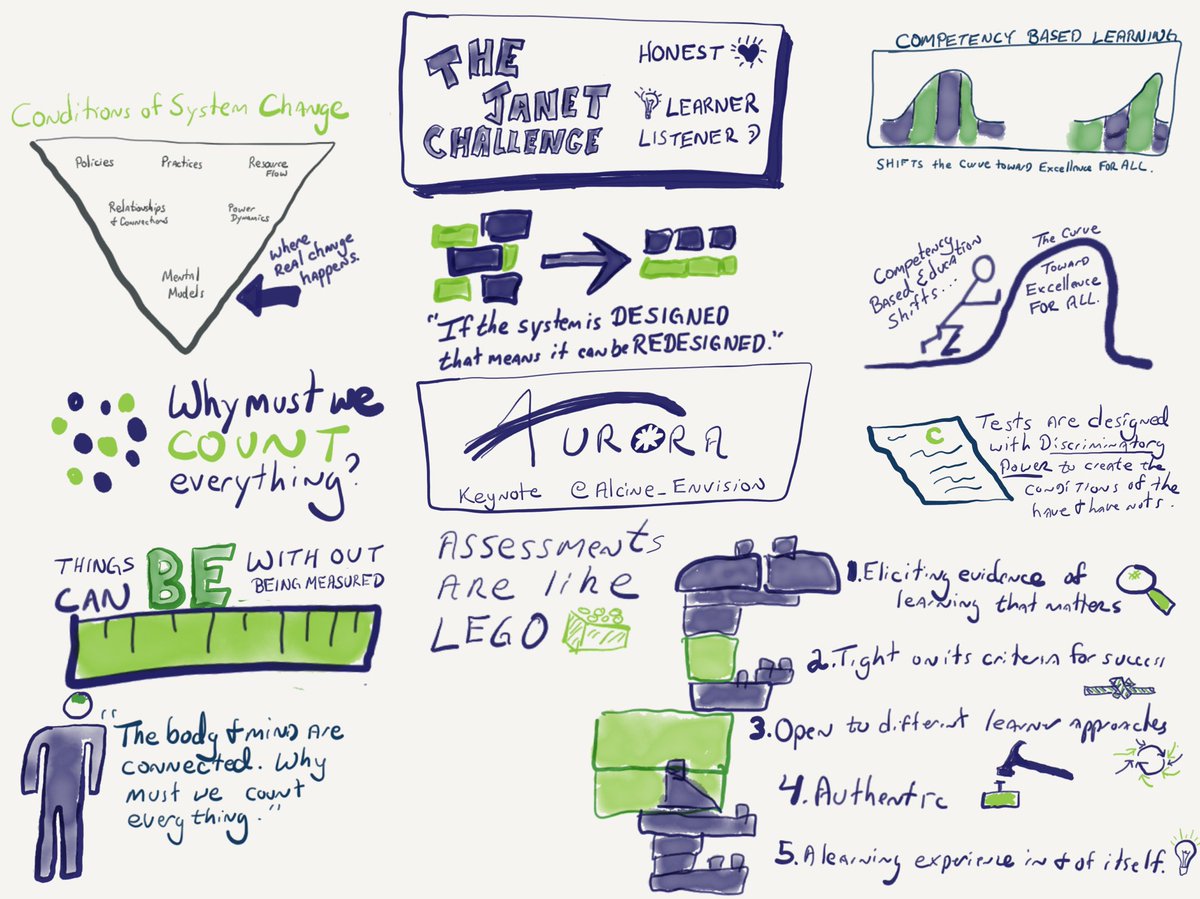 Conditions of System Change
Policies
Practices
Resource
Flow
Relationships
& Connections
Power
Dynamics
Mental
Models
where
Real change
happens.
Why must we
COUNT
everything?
THINGS
CAN
BE
WITH OUT
BEING MEASURED
"The body & mind are
connected. Why
must we count
everything."
THE
JANET
CHALLENGE
HONEST
LEARNER
LISTENER
"If the system is DESIGNED
that means it can be REDESIGNED."
AURORA
Keynote @Alcine_Envision
ASSESSMENTS
ARE like
LEGO
COMPETENCY BASED LEARNING
SHIFTS the Curve toward Excellence FOR ALL.
Competency
Based Education
Shifts...
The Curve
Toward
Excellence
FOR ALL.
C
Tests are designed
with Discriminatory
Power to create the
conditions of the
have & have nots.
1. Eliciting evidence of
learning that matters
2. Tight on its criteria for success
3. Open to different learner approaches
4. Authentic
5. A learning experience in & of itself.